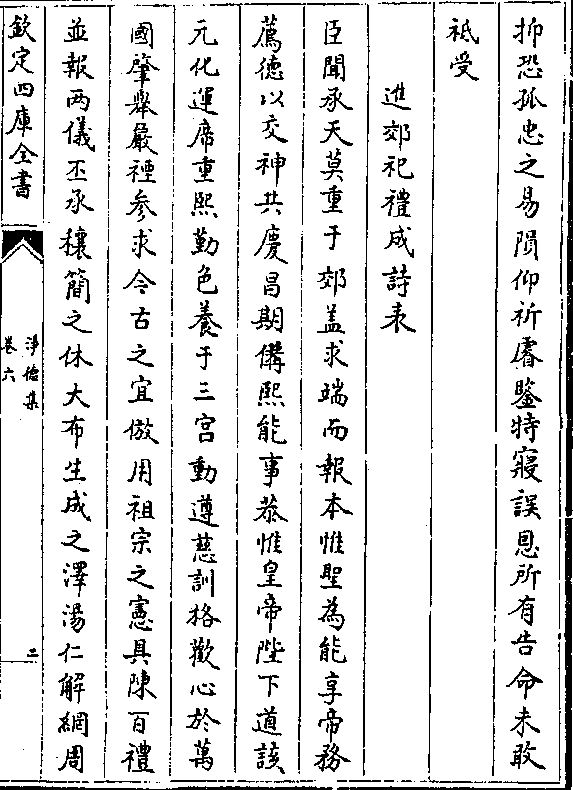 抑恐孤忠之易隕仰祈睿鑒特寢誤恩所有告命未敢
祗受
進郊祀禮成詩表
臣聞承天莫重于郊蓋求端而報本惟聖為能享帝務
薦德以交神共慶昌期備熙能事恭惟皇帝陛下道該
元化運席重熙勤色養于三宮動遵慈訓格歡心於萬
國肇舉嚴禋參求今古之宜倣用祖宗之憲具陳百禮
並報两儀丕承穰簡之休大布生成之澤湯仁解網周
欽定四庫全書
淨德集
卷六
二